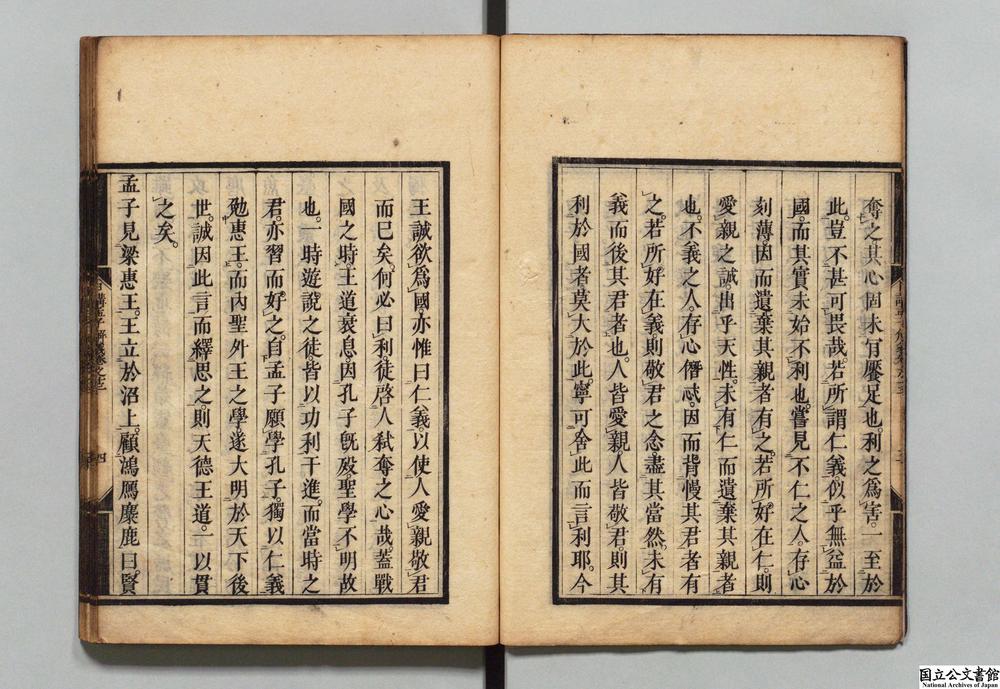 奪之其心固未肎饜足也。利之爲害。一至於
此。豈不甚可畏哉。若所謂仁義。似乎無益於
國。而其實未始不利也。嘗見不仁之人。存心
刻薄。因而遺棄其親者有之。若所好在仁。則
愛親之誠。出乎天性。未有仁而遺棄其親者
也。不義之人。存心僭忒。因而背慢其君者有
之。若所好在義。則敬君之念。盡其當然。未有
義而後其君者也。人皆愛親。人皆敬君。則其
利於國者莫大於此。寧可舍此而言利耶。今
王誠欲爲國。亦惟曰仁義。以使人愛親敬君
而已矣。何必曰利。徒啓人弑奪之心哉。蓋戰
國之時。王道衰息。因孔子旣歿。聖學不明。故
也。一時遊說之徒。皆以功利干進。而當時之
君。亦習而好之。自孟子願學孔子。獨以仁義
勉惠王。而內聖外王之學。遂大明於天下後
世。誠因此言而繹思之。則天德王道。一以貫
之矣。
孟子見梁惠王。王立於沼上。顧鴻鴈麋鹿曰。賢
四
国立公文書館
National Archives of Japan